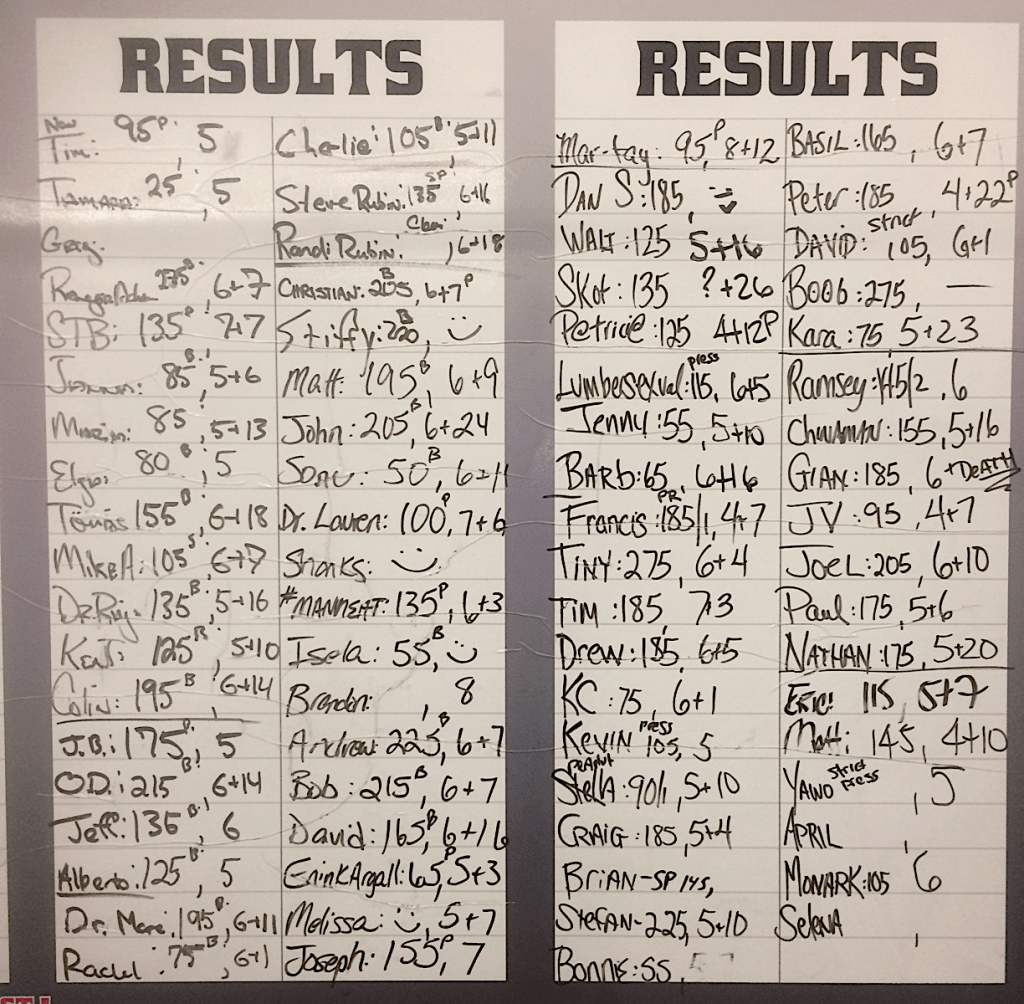 RESULTS
New
Tim: 95P, 5
Tamara: 25, 5
Greg:
135B, 6+7
STB: 135P, 7+7
85B, 5+6
85, 5+13
80B, 5
Tomas 155B, 6+18
Mike A: 105S, 6+7
135B, 5+16
Kent: 125B, 5+10
Colin: 195B, 6+14
J.B.: 175P, 5
O.D.: 215B, 6+14
Jeff: 135B, 6
Alberto: 125B, 5
Dr. 195B, 6+11
Rachel: 75B, 6+1
Charlie: 105B, 5+11
Steve Rubin: 135SP, 6+16
Randi Rubin: , 6+18
CHRISTIAN: 205B, 6+7P
Stiffy: 220B, :)
Matt: 195B, 6+9
John: 205B, 6+24
50B, 6+11
Dr. Lauren: 100P, 7+6
Shanks: :)
#MANMEAT: 135P, 6+3
Isela: 55B, :)
Brandon: , 8
Andrew: 225B, 6+7
Bob: 215B, 6+7
David: 165B, 6+16
ErinkArgall: 65P, 5+3
Melissa: :), 5+7
Joseph: 155P, 7
RESULTS
Mar-tay: 95P, 8+12
DAN S: 185,
WALT: 125 5+16
SKot: 135 ?+26
Petricia: 125 4+12P
Lumbersexual: 115, press 6+5
Jenny: 55, 5+10
BARB: 65, 6+16
Francis: 185/1, PR 4+7
TINY: 275, 6+4
TIM: 185, 7+3
Drew: 185, 6+5
KC: 75, 6+1
KEVIN press 105, 5
PEANUT
Stella: 90/1, 5+10
CRAIG: 185, 5+4
BRIAN-SP 145,
STEFAN-225, 5+10
Bonnie: 55,
BASIL: 165, 6+7
Peter: 185, 4+22P
DAVID: strict 105, 6+1
BOOB: 275, —
Kara: 75, 5+23
Ramsey: 145/2, 6
155, 5+16
GIAN: 185, 6+DEATH
JV: 95, 4+7
JOEL: 205, 6+10
Paul: 175, 5+6
NATHAN: 175, 5+20
ERIC: 115, 5+7
Matt: 145, 4+10
YAWO strict press, 5
APRIL ,
MONARK: 105 6
SELENA ,